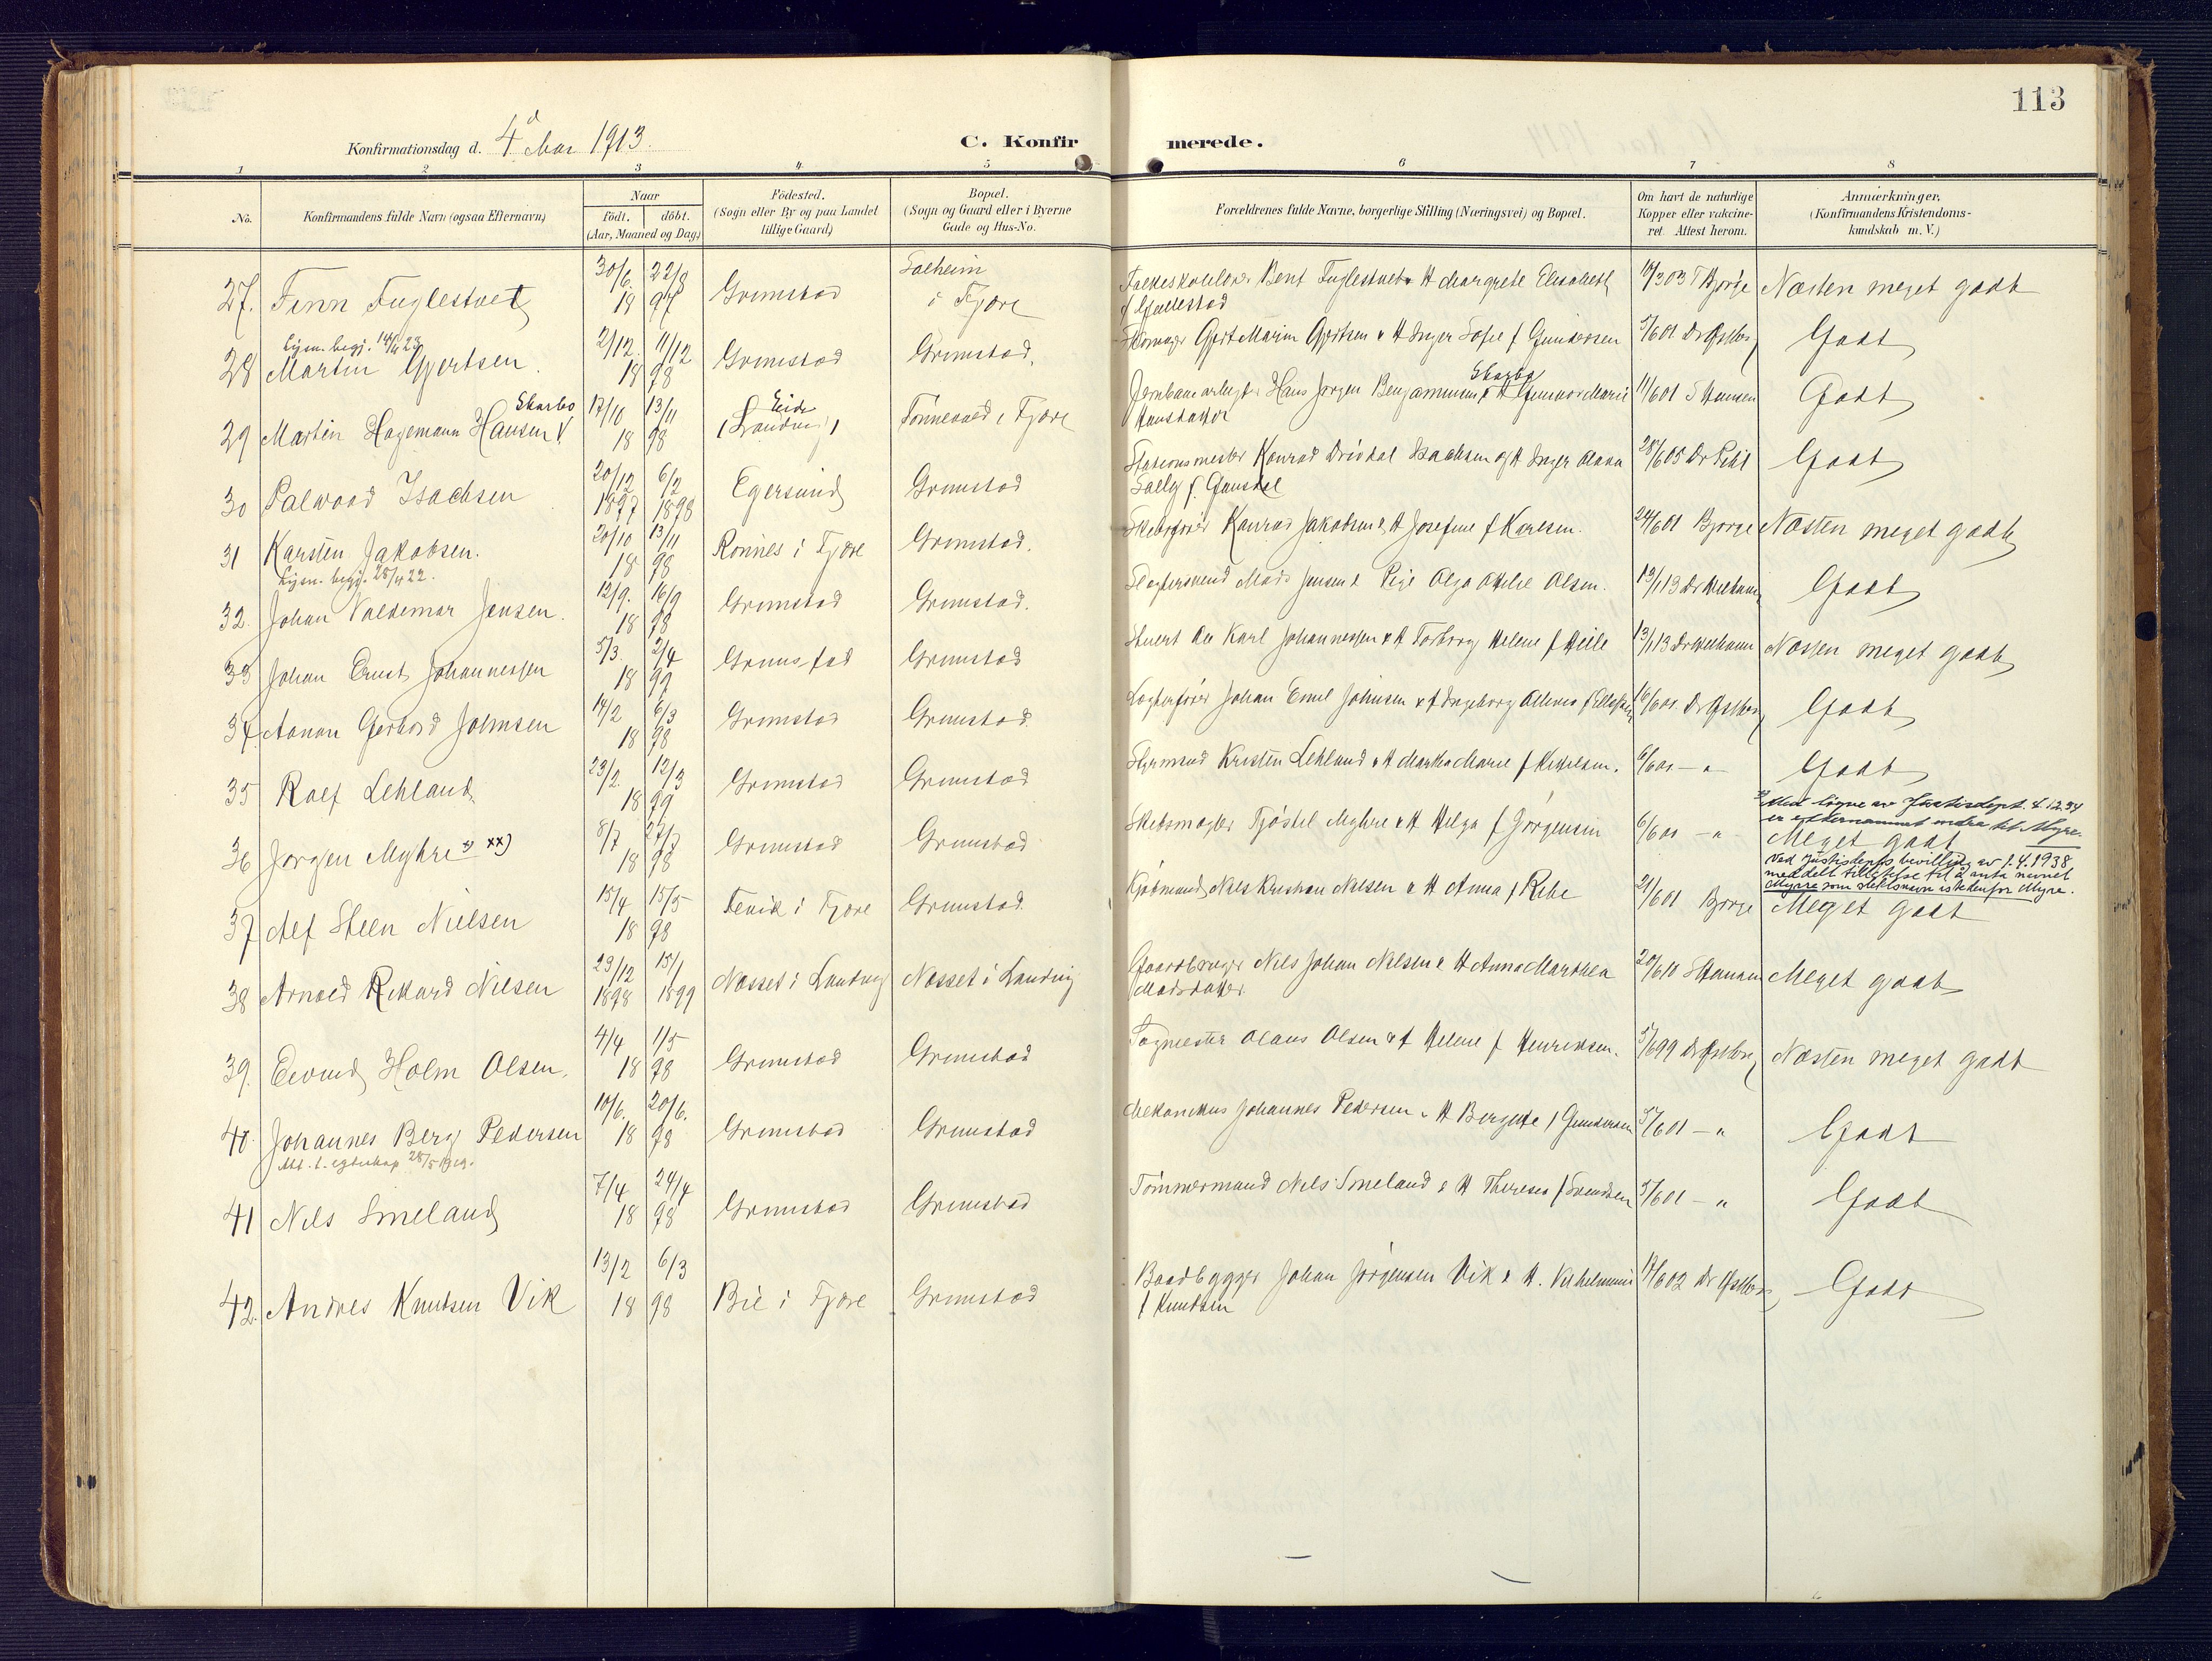 113
Konfirmationsdag d. 4 Mai 1913.
C. Konfirmerede.
1 2 3 4 5 6 7 8
No.
Konfirmandens fulde Navn (ogsaa Efternavn)
Naar
födt. döbt.
(Aar, Maaned og Dag)
Födested.
(Sogn eller By og paa Landet
tillige Gaard)
Bopæl.
(Sogn og Gaard eller i Byerne
Gade og Hus-No.
Forældrenes fulde Navne, borgerlige Stilling (Næringsvei) og Bopæl.
Om havt de naturlige
Kopper eller vakcine-
ret. Attest herom.
Anmærkninger.
(Konfirmandens Kristendoms-
kundskab m. V.)
27. Finn Fuglestvedt 30/6. 22/8 18 97 Grimstad Solheim i Fjære Bent Fuglestvedt & H Margrete Elisabeth Bjorge Næsten meget godt
f Gjellestad
Lysn. begj. 14/4 23
28 Martin Gjertsen. 2/12. 11/12 18 98 Grimstad Grimstad. Gjert Marin Gjertsen & H Inger Sofie f Gundersen 5/6 01 Godt
29 Martin Hagemann Hansen Skarbo 17/10 13/11 18 98 Eide (Landvig) i Fjære Jernbanearbeider Hans Jørgen Benjaminsen Skarbo & H Gunvor Marie 11/6 01 S Hansen Godt
Hansdatter
30 Isachsen 20/12 6/2 1897 1898 Egersund Grimstad Stationsmester Konrad Isachsen og H Inger 28/6 05 Godt
Sally f.
31 Karsten Jakobsen. 20/10 13/11 18 98 Rønnes i Fjære Grimstad. Skibsfører Konrad Jakobsen & H Josefine f Karlsen. 24/6 01 Bjorge Næsten meget godt
Lysn. begj. 28/4 22.
32. Johan Valdemar Jensen. 12/9. 16/9 18 98 Grimstad Grimstad. Mads Jensen & Pige Olga Olsen. 13/1 13 Godt
33 Johan Ernst Johannessen 5/3. 2/4 18 99 Grimstad Grimstad Stuert Karl Johannessen & H Torborg Helene f Heile 13/1 13 Næsten meget godt
34. Anton Gerhard Johnsen 14/2 6/3 18 98 Grimstad Grimstad Johan Emil Johnsen & H Ingeborg Godt
35 Rolf Lehland 23/2. 12/3 18 99 Grimstad Grimstad Styrmand Kristen Lehland & H Martha Marie f — " Godt
36 Jørgen Myhre x) xx) 8/7 18 98 Grimstad Grimstad Skibsmægler Tjøstel Myhre & H Helga f Jørgensen — " Meget godt
x) Med løyve av Justisdept. 4.12.34
er etternamnet endra til Myre.
Ved Justisdepts bevilling av 1.4.1938
meddelt tillatelse til å anta navnet
Myrre som slektsnavn istedenfor Myre.
37 Alf Steen Nielsen 15/4 15/5 18 98 Fevik i Fjære Grimstad Kjøbmand Niels Kristian Nielsen & H Anna f Ribe 21/6 01 Bjorge Meget godt
38 Arnold Rikard Nielsen 29/12 15/1 1898 1899 Næsset i Landvig Næsset i Landvig Gaardbruger Nils Johan Nielsen & H Anna Marthea 20/6 10 Meget godt
Madsdatter
39. Eivind Holm Olsen. 4/4 1/5 18 98 Grimstad Grimstad Olaus Olsen & H Helene f Henriksen. 5/6 99 Næsten meget godt
40. Johannes Berg Pedersen 10/6. 20/6. 18 98 Grimstad Grimstad Mekanikus Johannes Pedersen & H Bergitte f Gundersen 5/6 01 — " Godt
Att. t. egteskap 28/5 1919.
41 Nils Smeland 7/4 24/4 18 98 Grimstad Grimstad Tømmermand Nils Smeland & H Therese f Svendsen 5/6 01 — " Godt
42. Andres Knutsen Vik 13/2 6/3 18 98 Bie i Fjære Grimstad Baadbygger Johan Jørgensen Vik & H. Vilhelmine Godt
f Knutsen